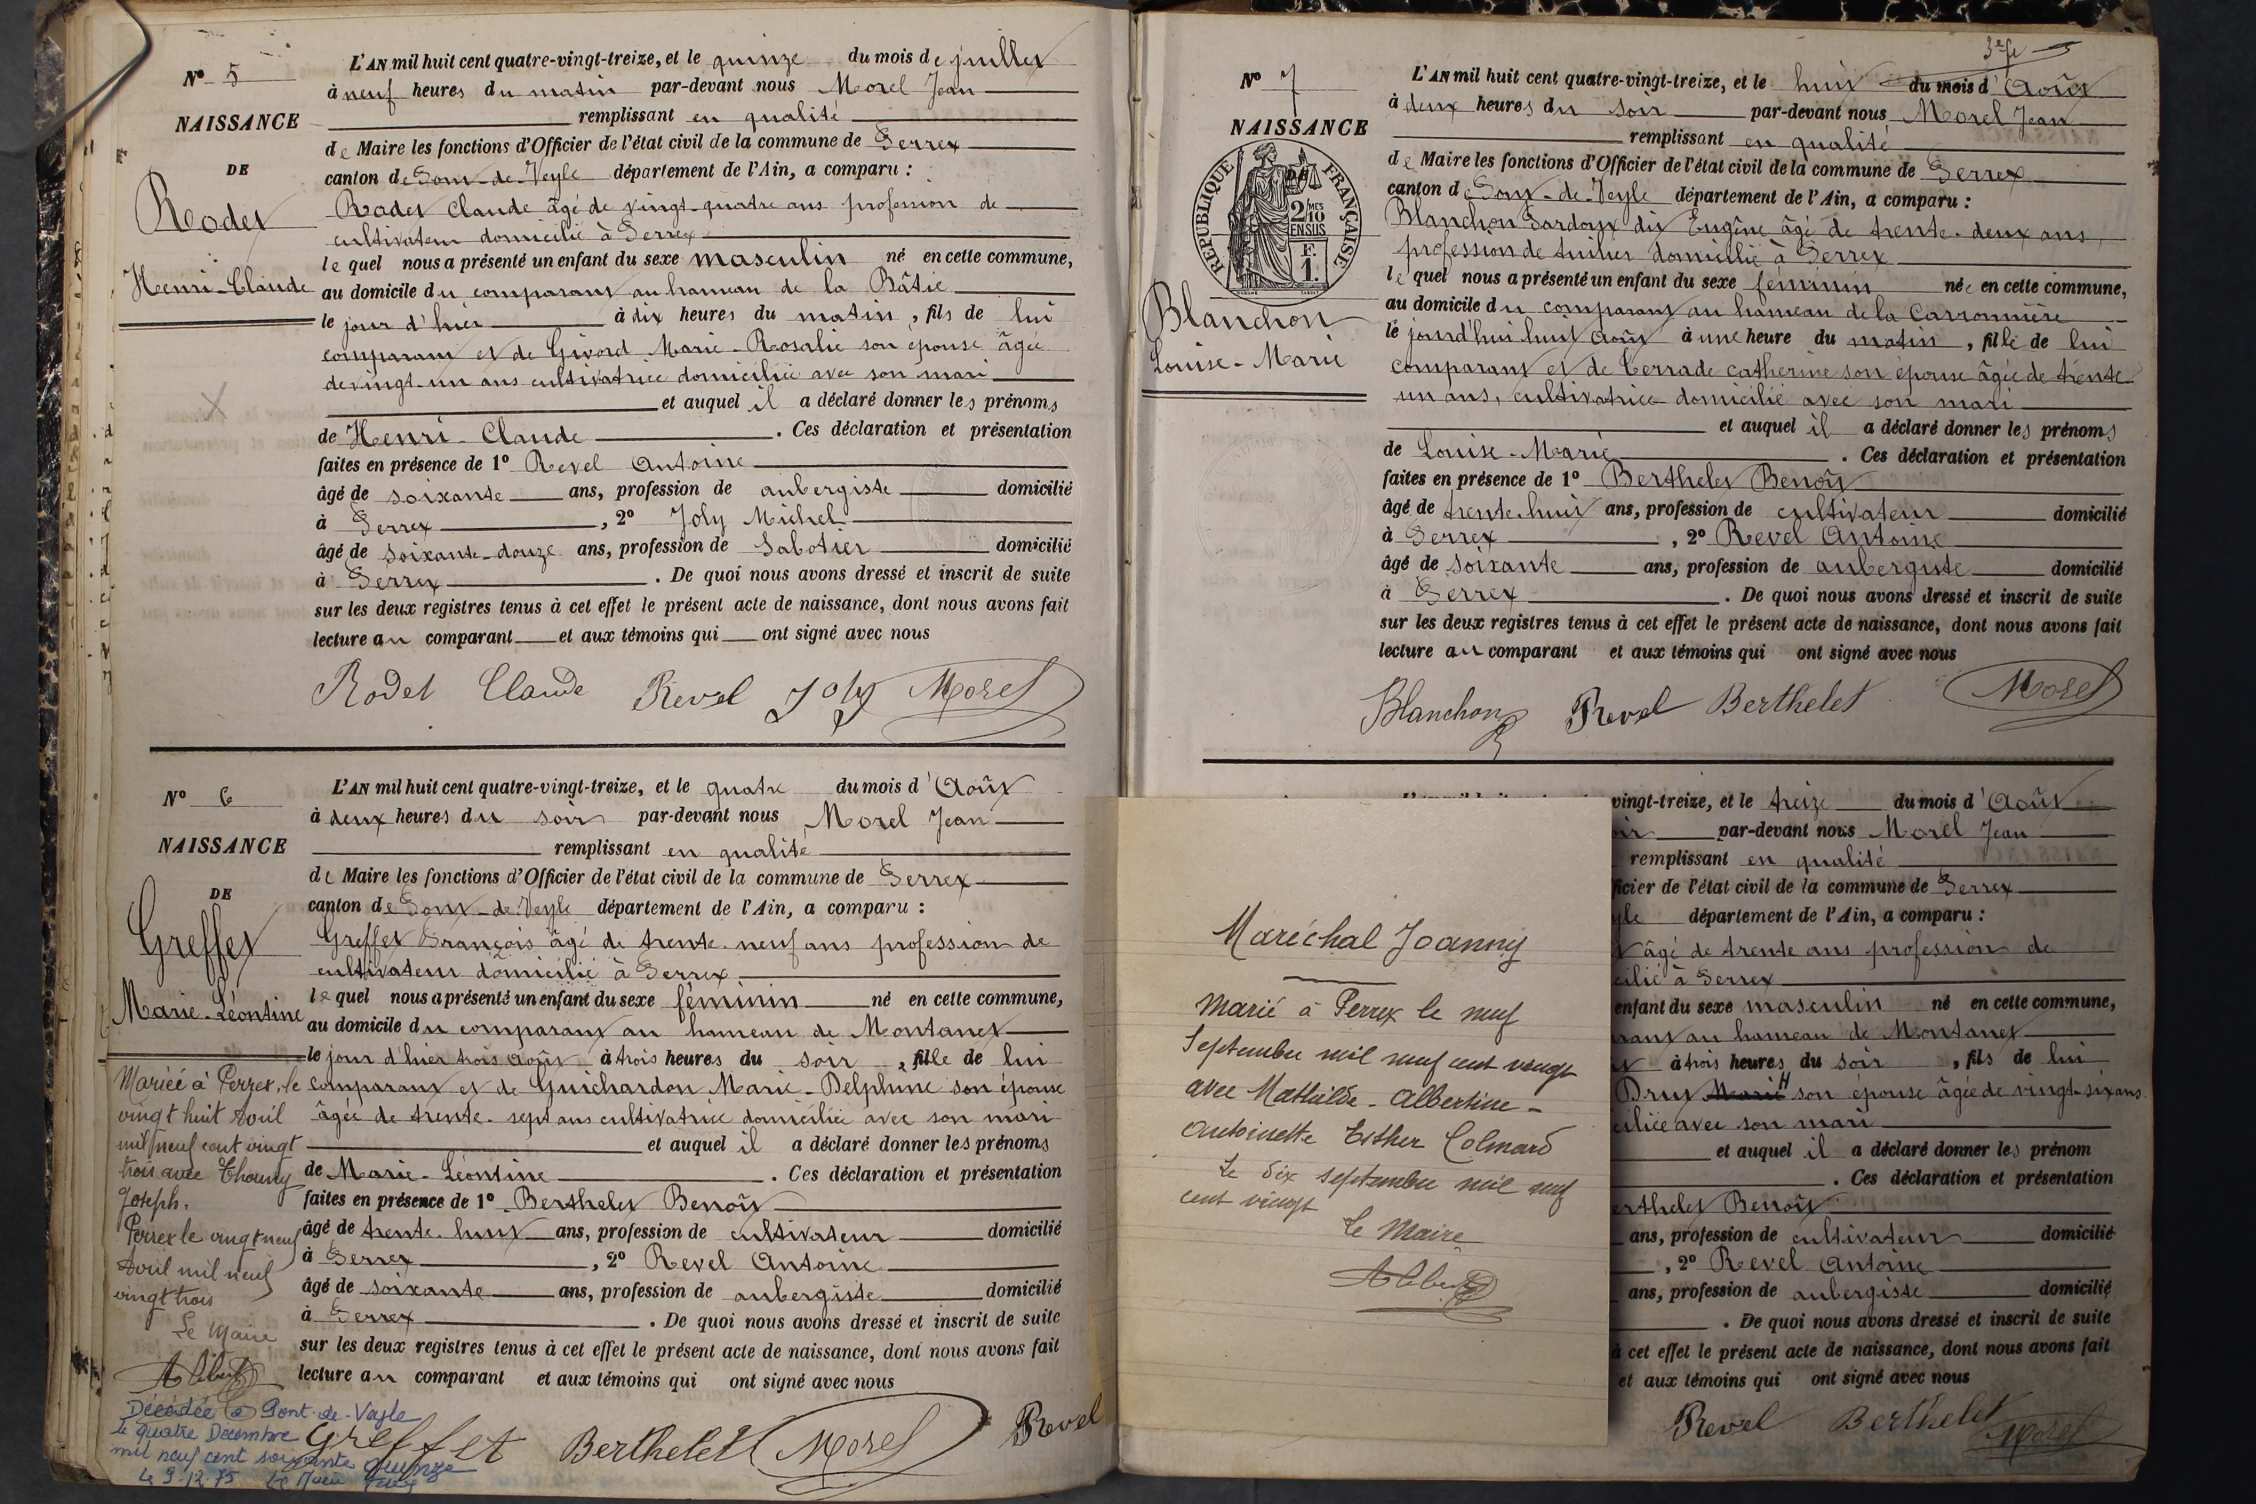 N° 5
NAISSANCE
DE
Rodet
Henri-Claude
L'AN mil huit cent quatre-vingt-treize, et le quinze du mois de juillet
à neuf heures du matin par-devant nous Morel Jean
remplissant en qualité
de Maire les fonctions d'Officier de l'état civil de la commune de Perrex
canton de Pont-de-Veyle département de l'Ain, a comparu :
Rodet Claude âgé de vingt-quatre ans profession de
cultivateur domicilié à Perrex
lequel nous a présenté un enfant du sexe masculin né en cette commune,
au domicile du comparant au hameau de la Bâtie
le jour d'hier à dix heures du matin, fils de lui
comparant et de Givord Marie-Rosalie son épouse âgée
de vingt-un ans cultivatrice domiciliée avec son mari
et auquel il a déclaré donner les prénoms
de Henri-Claude . Ces déclaration et présentation
faites en présence de 1° Revel Antoine
âgé de soixante ans, profession de aubergiste domicilié
à Perrex , 2° Joly Michel
âgé de soixante-douze ans, profession de Sabotier domicilié
à Perrex . De quoi nous avons dressé et inscrit de suite
sur les deux registres tenus à cet effet le présent acte de naissance, dont nous avons fait
lecture au comparant et aux témoins qui ont signé avec nous
Rodet Claude Revel Joly Morel
N° 6
NAISSANCE
DE
Greffet
Marie-Léontine
L'AN mil huit cent quatre-vingt-treize, et le quatre du mois d'Août
à deux heures du soir par-devant nous Morel Jean
remplissant en qualité
de Maire les fonctions d'Officier de l'état civil de la commune de Perrex
canton de Pont-de-Veyle département de l'Ain, a comparu :
Greffet François âgé de trente-neuf ans profession de
cultivateur domicilié à Perrex
lequel nous a présenté un enfant du sexe féminin né en cette commune,
au domicile du comparant au hameau de Montanet
le jour d'hier trois Août à trois heures du soir, fille de lui
comparant et de Guichardon Marie-Delphine son épouse
âgée de trente-sept ans cultivatrice domiciliée avec son mari
et auquel il a déclaré donner les prénoms
de Marie-Léontine . Ces déclaration et présentation
faites en présence de 1° Berthelet Benoît
âgé de trente-huit ans, profession de cultivateur domicilié
à Perrex , 2° Revel Antoine
âgé de soixante ans, profession de aubergiste domicilié
à Perrex . De quoi nous avons dressé et inscrit de suite
sur les deux registres tenus à cet effet le présent acte de naissance, dont nous avons fait
lecture au comparant et aux témoins qui ont signé avec nous
Greffet Berthelet Morel Revel
Mariée à Perrex, le
vingt huit Avril
mil neuf cent vingt
trois avec Thouny
Joseph.
Perrex le vingt neuf
Avril mil neuf
vingt trois
Le Maire
Décédée à Pont-de-Veyle
le quatre Décembre
mil neuf cent soixante quinze
Le 9-12-75 Le Maire
3e fe
N° 7
NAISSANCE
DE
RÉPUBLIQUE FRANÇAISE
2/10MES
EN SUS
F.
1.
Blanchon
Louise-Marie
L'AN mil huit cent quatre-vingt-treize, et le huit du mois d'Août
à deux heures du soir par-devant nous Morel Jean
remplissant en qualité
de Maire les fonctions d'Officier de l'état civil de la commune de Perrex
canton de Pont-de-Veyle département de l'Ain, a comparu :
Blanchon Pardoux dit Eugène âgé de trente-deux ans,
profession de tuilier domicilié à Perrex
lequel nous a présenté un enfant du sexe féminin née en cette commune,
au domicile du comparant au hameau de la Carronnière
le jourd'hui huit Août à une heure du matin, fille de lui
comparant et de Terrade Catherine son épouse âgée de trente-
un ans, cultivatrice domicilié avec son mari
et auquel il a déclaré donner les prénoms
de Louise-Marie . Ces déclaration et présentation
faites en présence de 1° Berthelet Benoît
âgé de trente-huit ans, profession de cultivateur domicilié
à Perrex , 2° Revel Antoine
âgé de soixante ans, profession de aubergiste domicilié
à Perrex . De quoi nous avons dressé et inscrit de suite
sur les deux registres tenus à cet effet le présent acte de naissance, dont nous avons fait
lecture au comparant et aux témoins qui ont signé avec nous
Blanchon Revel Berthelet Morel
Maréchal Joanny
Marié à Perrex le neuf
Septembre mil neuf cent vingt
avec Mathilde-Albertine-
Antoinette Esther Colmard
Le dix septembre mil neuf
cent vingt
Le Maire
vingt-treize, et le treize du mois d'Août
par-devant nous Morel Jean
remplissant en qualité
ficier de l'état civil de la commune de Perrex
yle département de l'Ain, a comparu :
âgé de trente ans profession de
cilié à Perrex
enfant du sexe masculin né en cette commune,
rant au hameau de Montanet
à trois heures du soir, fils de lui
Drut Marie son épouse âgée de vingt-six ans
ciliée avec son mari
et auquel il a déclaré donner les prénom
. Ces déclaration et présentation
erthelet Benoît
ans, profession de cultivateur domicilié
, 2° Revel Antoine
ans, profession de aubergiste domicilié
. De quoi nous avons dressé et inscrit de suite
à cet effet le présent acte de naissance, dont nous avons fait
et aux témoins qui ont signé avec nous
Revel Berthelet Morel